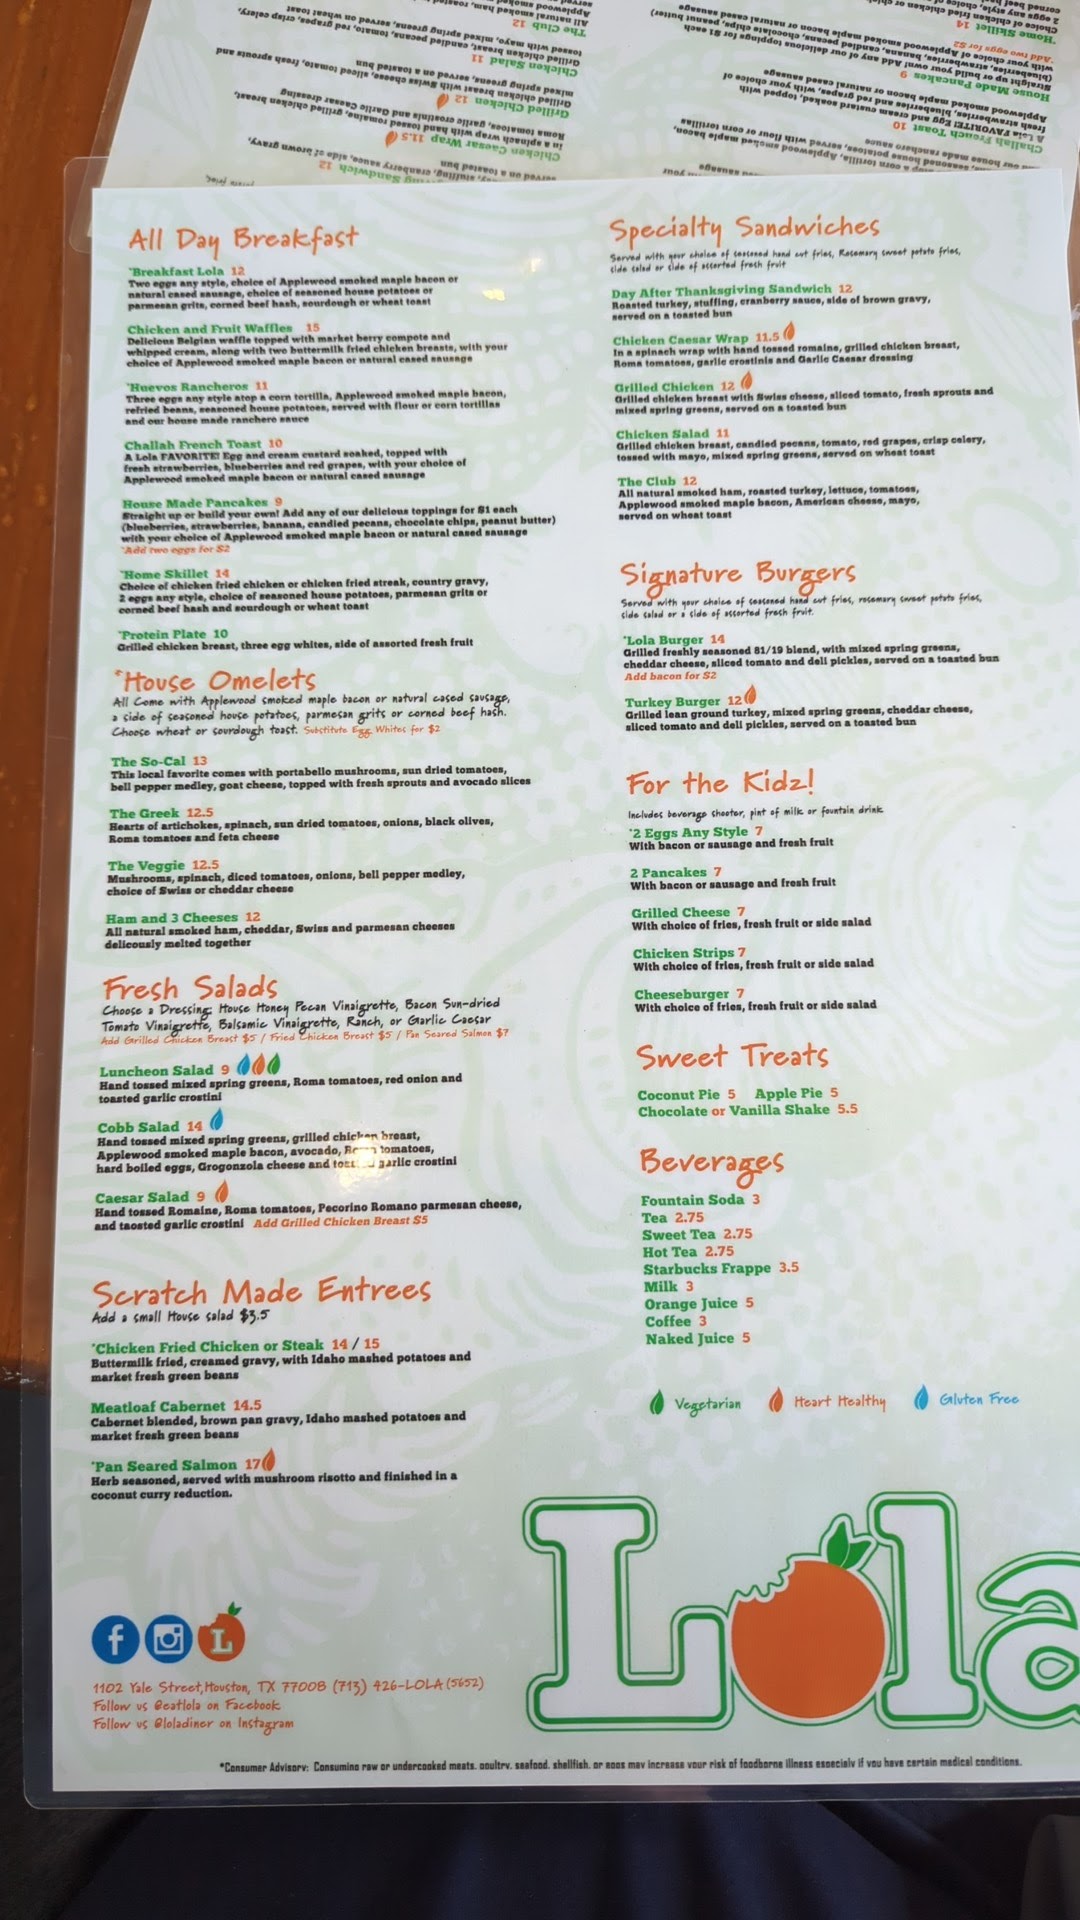 All Day Breakfast
*Breakfast Lola 12
Two eggs any style, choice of Applewood smoked maple bacon or
natural cased sausage, choice of seasoned house potatoes or
parmesan grits, corned beef hash, sourdough or wheat toast
Chicken and Fruit Waffles 15
Delicious Belgian waffle topped with market berry compote and
whipped cream, along with two buttermilk fried chicken breasts, with your
choice of Applewood smoked maple bacon or natural cased sausage
*Huevos Rancheros 11
Three eggs any style atop a corn tortilla, Applewood smoked maple bacon,
refried beans, seasoned house potatoes, served with flour or corn tortillas
and our house made ranchero sauce
Challah French Toast 10
A Lola FAVORITE! Egg and cream custard soaked, topped with
fresh strawberries, blueberries and red grapes, with your choice of
Applewood smoked maple bacon or natural cased sausage
House Made Pancakes 9
Straight up or build your own! Add any of our delicious toppings for $1 each
(blueberries, strawberries, banana, candied pecans, chocolate chips, peanut butter)
with your choice of Applewood smoked maple bacon or natural cased sausage
*Add two eggs for $2
*Home Skillet 14
Choice of chicken fried chicken or chicken fried streak, country gravy,
2 eggs any style, choice of seasoned house potatoes, parmesan grits or
corned beef hash and sourdough or wheat toast
*Protein Plate 10
Grilled chicken breast, three egg whites, side of assorted fresh fruit
*House Omelets
All Come with Applewood smoked maple bacon or natural cased sausage,
a side of seasoned house potatoes, parmesan grits or corned beef hash.
Choose wheat or sourdough toast. Substitute Egg Whites for $2
The So-Cal 13
This local favorite comes with portabello mushrooms, sun dried tomatoes,
bell pepper medley, goat cheese, topped with fresh sprouts and avocado slices
The Greek 12.5
Hearts of artichokes, spinach, sun dried tomatoes, onions, black olives,
Roma tomatoes and feta cheese
The Veggie 12.5
Mushrooms, spinach, diced tomatoes, onions, bell pepper medley,
choice of Swiss or cheddar cheese
Ham and 3 Cheeses 12
All natural smoked ham, cheddar, Swiss and parmesan cheeses
delicously melted together
Fresh Salads
Choose a Dressing: House Honey Pecan Vinaigrette, Bacon Sun-dried
Tomato Vinaigrette, Balsamic Vinaigrette, Ranch, or Garlic Caesar
Add Grilled Chicken Breast $5 / Fried Chicken Breast $5 / Pan Seared Salmon $7
Luncheon Salad 9
Hand tossed mixed spring greens, Roma tomatoes, red onion and
toasted garlic crostini
Cobb Salad 14
Hand tossed mixed spring greens, grilled chicken breast,
Applewood smoked maple bacon, avocado, Roma tomatoes,
hard boiled eggs, Grogonzola cheese and toasted garlic crostini
Caesar Salad 9
Hand tossed Romaine, Roma tomatoes, Pecorino Romano parmesan cheese,
and taosted garlic crostini Add Grilled Chicken Breast $5
Scratch Made Entrees
Add a small House salad $3.5
*Chicken Fried Chicken or Steak 14 / 15
Buttermilk fried, creamed gravy, with Idaho mashed potatoes and
market fresh green beans
Meatloaf Cabernet 14.5
Cabernet blended, brown pan gravy, Idaho mashed potatoes and
market fresh green beans
*Pan Seared Salmon 17
Herb seasoned, served with mushroom risotto and finished in a
coconut curry reduction.
L
1102 Yale Street, Houston, TX 77008 (713) 426-LOLA (5652)
Follow us @eatlola on Facebook
Follow us @loladiner on Instagram
Specialty Sandwiches
Served with your choice of seasoned hand cut fries, Rosemary sweet potato fries,
side salad or side of assorted fresh fruit
Day After Thanksgiving Sandwich 12
Roasted turkey, stuffing, cranberry sauce, side of brown gravy,
served on a toasted bun
Chicken Caesar Wrap 11.5
In a spinach wrap with hand tossed romaine, grilled chicken breast,
Roma tomatoes, garlic crostinis and Garlic Caesar dressing
Grilled Chicken 12
Grilled chicken breast with Swiss cheese, sliced tomato, fresh sprouts and
mixed spring greens, served on a toasted bun
Chicken Salad 11
Grilled chicken breast, candied pecans, tomato, red grapes, crisp celery,
tossed with mayo, mixed spring greens, served on wheat toast
The Club 12
All natural smoked ham, roasted turkey, lettuce, tomatoes,
Applewood smoked maple bacon, American cheese, mayo,
served on wheat toast
Signature Burgers
Served with your choice of seasoned hand cut fries, rosemary sweet potato fries,
side salad or a side of assorted fresh fruit.
*Lola Burger 14
Grilled freshly seasoned 81/19 blend, with mixed spring greens,
cheddar cheese, sliced tomato and deli pickles, served on a toasted bun
Add bacon for $2
Turkey Burger 12
Grilled lean ground turkey, mixed spring greens, cheddar cheese,
sliced tomato and deli pickles, served on a toasted bun
For the Kidz!
Includes beverage shooter, pint of milk or fountain drink
*2 Eggs Any Style 7
With bacon or sausage and fresh fruit
2 Pancakes 7
With bacon or sausage and fresh fruit
Grilled Cheese 7
With choice of fries, fresh fruit or side salad
Chicken Strips 7
With choice of fries, fresh fruit or side salad
Cheeseburger 7
With choice of fries, fresh fruit or side salad
Sweet Treats
Coconut Pie 5 Apple Pie 5
Chocolate or Vanilla Shake 5.5
Beverages
Fountain Soda 3
Tea 2.75
Sweet Tea 2.75
Hot Tea 2.75
Starbucks Frappe 3.5
Milk 3
Orange Juice 5
Coffee 3
Naked Juice 5
Vegetarian Heart Healthy Gluten Free
Lola
*Consumer Advisory: Consuming raw or undercooked meats, poultry, seafood, shellfish, or eggs may increase your risk of foodborne illness especialy if you have certain medical conditions.